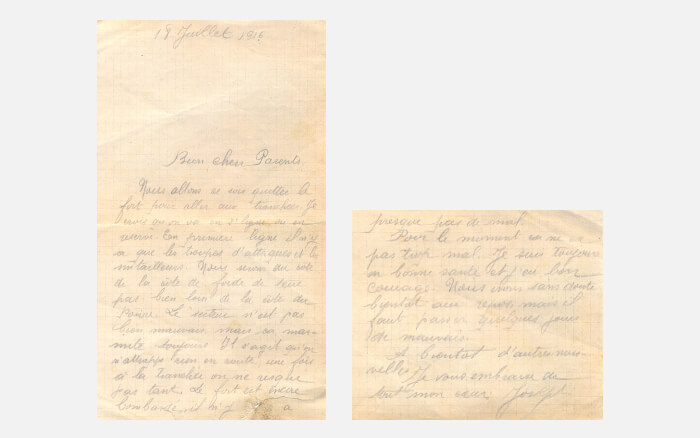 18 Juillet 1916
Bien chers Parents.
Nous allons ce soir quitter le
fort pour aller aux tranchées. Je
crois qu'on va en ligne, ou en
réserve. En première ligne il n'y
a que les troupes d'attaques et les
mitrailleurs. Nous serons du côté
de la côte de
pas bien loin de la côte du
Poivre. Le secteur n'est pas
bien mauvais, mais on mar-
mite toujours. Il s'agit qu'on
n'attrappe rien en route, une fois
à la tranchée on ne risque
pas tant. Le fort est encore
bombardé et il n'y a
presque pas de mal.
Pour le moment on ne va
pas trop mal. Je suis toujours
en bonne santé et j'ai bon
courage. Nous irons sans doute
bientôt au repos, mais il
faut passer quelques jours
de mauvais.
A bientôt d'autres nou-
velles. Je vous embrasse de
tout mon cœur. Joseph